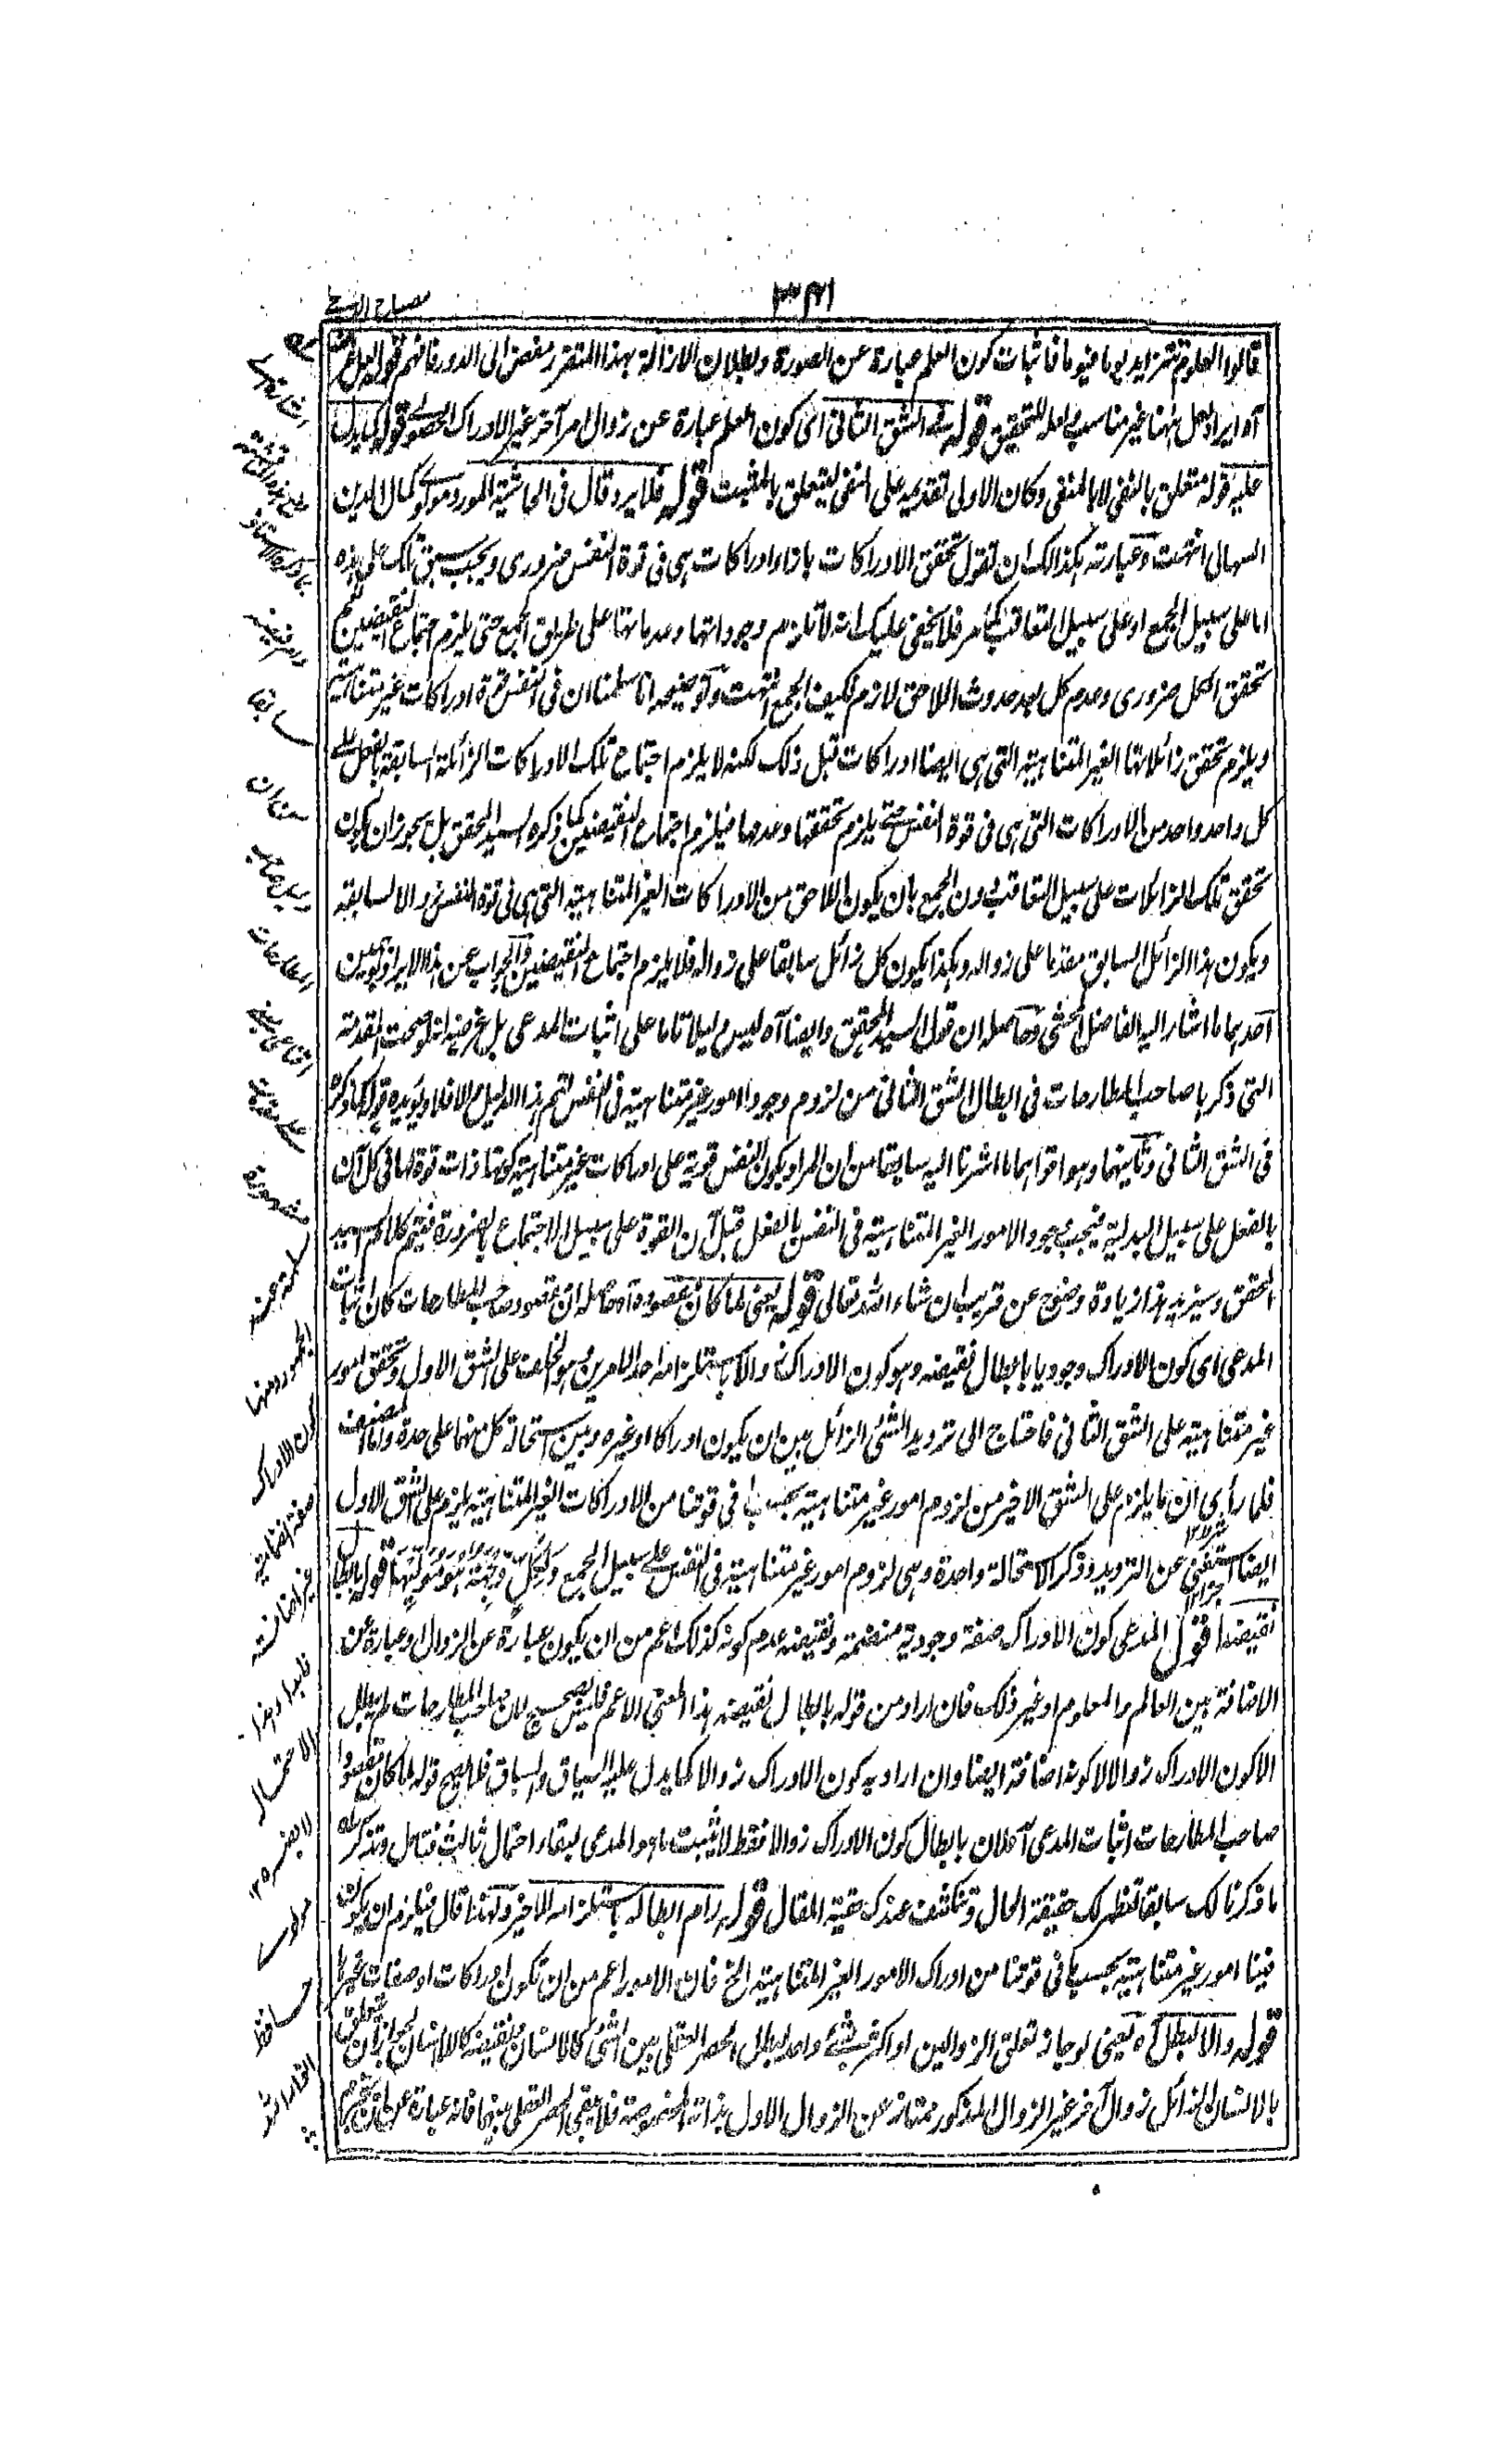 مصباح الدجى
۳۴۱
قالوا العلوم تتزايد يوما فيوما فاثبات كون العلم عبارة عن الصورة وبطلان الازالة بهذا المتقرر مفض الى الدور فافهم قوله لعل
آه ايراد لعل ههنا غير مناسب ولعله للتحقيق قوله فى الشق الثانى اى كون العلم عبارة عن زوال امر آخر غير الادراك الحصولى قوله كما يدل
عليه قوله متعلق بالنفى لا بالمنفى وكان الاولى تقديمه على المنفى ليتعلق بالمثبت قوله فلا يرد قال فى الحاشية المورد مولوى كمال الدين
السهالى انتهت وعبارته هكذا لك ان تقول تحقق الادراكات بازاء ادراكات هى فى قوة النفس ضرورى ويجب سبق تلك على هذه
اما على سبيل الجمع او على سبيل التعاقب كما مر فلا يخفى عليك انه لا تلازم وجوداتها وعدماتها على طريق الجمع حتى يلزم اجتماع النقيضين نعم
تحقق الكل ضرورى وعدم كل بعد حدوث اللاحق لازم فكيف الجمع انتهت وتوضيحه انا سلمنا ان فى النفس قوة ادراكات غير متناهية
ويلزم تحقق زائلاتها الغير المتناهية التى هى ايضا ادراكات قبل ذلك لكنه لا يلزم اجتماع تلك الادراكات الزائلة السابقة بالفعل على
كل واحد واحد من الادراكات التى هى فى قوة النفس حتى يلزم تحققها وعدمها فيلزم اجتماع النقيضين كما ذكره السيد المحقق بل يجوز ان يكون
تحقق تلك الزائلات على سبيل التعاقب دون الجمع بان يكون اللاحق من الادراكات الغير المتناهية التى هى فى قوة النفس زوالا لسابقه
ويكون هذا الزائل السابق مقدما على زواله وهكذا يكون كل زائل سابقا على زواله فلا يلزم اجتماع النقيضين والجواب عن هذا الايراد بوجهين
احدهما ما اشار اليه الفاضل المحشى وحاصله ان قول السيد المحقق وايضا آه ليس دليلا تاما على اثبات المدعى بل غرضه انه لو صحت المقدمة
التى ذكرها صاحب المطارحات فى ابطال الشق الثانى من لزوم وجود امور غير متناهية فى النفس لتم هذا الدليل والا فلا ويؤيده قوله كما ذكره
فى الشق الثانى وثانيهما وهو اقواهما ما اشرنا اليه سابقا من ان المراد بكون النفس قوية على ادراكات غير متناهية كونها ذات قوة لها فى كل آن
بالفعل على سبيل البدلية فيجب وجود الامور الغير المتناهية فى النفس بالفعل قبل آن القوة على سبيل الاجتماع بالضرورة فيتم كلام السيد
المحقق وسيزيد هذا زيادة وضوح عن قريب ان شاء الله تعالى قوله يعنى لما كان مقصوده آه حاصله ان مقصود صاحب المطارحات كان اثبات
المدعى اى كون الادراك وجوديا بابطال نقيضه وهو كون الادراك زوالا باستلزامه احد الامرين وهو الخلف على الشق الاول وتحقق امور
غير متناهية على الشق الثانى فاحتاج الى ترديد الشئ الزائل بين ان يكون ادراكا او غيره وبين استحالة كل منهما على حدة واما المصنف
فلما رأى ان ما يلزم على الشق الاخير من لزوم امور غير متناهية بحسب ما فى قوتنا من الادراكات الغير المتناهية يلزم على الشق الاول
ايضا استغنى عن الترديد وذكر الاستحالة واحدة وهى لزوم امور غير متناهية فى النفس على سبيل الجمع ولكل وجهة هو موليها قوله بابطال
نقيضه اقول المدعى كون الادراك صفة وجودية منضمة ونقيضه عدم كونه كذلك اعم من ان يكون عبارة عن الزوال او عبارة عن
الاضافة بين العالم والمعلوم او غير ذلك فان اراد من قوله بابطال نقيضه هذا المعنى الاعم فليس بصحيح لان صاحب المطارحات لم يبطل
الا كون الادراك زوالا لا كونه اضافة ايضا وان اراد به كون الادراك زوالا كما يدل عليه السياق والسباق فلا يصح قوله لما كان مقصود
صاحب المطارحات اثبات المدعى آه لان بابطال كون الادراك زوالا فقط لا يثبت ما هو المدعى لبقاء احتمال ثالث فتامل وتذكر
ما ذكرنا لك سابقا تظهر لك حقيقة الحال وتنكشف عندك حقية المقال قوله رام ابطاله باستلزامه للاخير ولهذا قال فيلزم ان يكون
فينا امور غير متناهية بحسب ما فى قوتنا من ادراك الامور الغير المتناهية الخ فان الامور اعم من ان تكون ادراكات او صفات غيرها
قوله والا لبطل آه يعنى لو جاز تعلق الزوالين او اكثر بشئ واحد لبطل الحصر العقلى بين الشئ كالانسان ونقيضه كاللاانسان لجواز ان يتعلق
بالانسان الزائل زوال آخر غير الزوال المذكور ممتاز عن الزوال الاول بذاته المخصوصة فلا يبقى الحصر العقلى بينهما فانه عبارة عن
سابقا
من ان
المطارحات
مشهورة
مسلمة عند
الجمهور ومنها
كون الادراك
صفة انضمامية
غير اضافية
الاحتمال
مولوى
حافظ